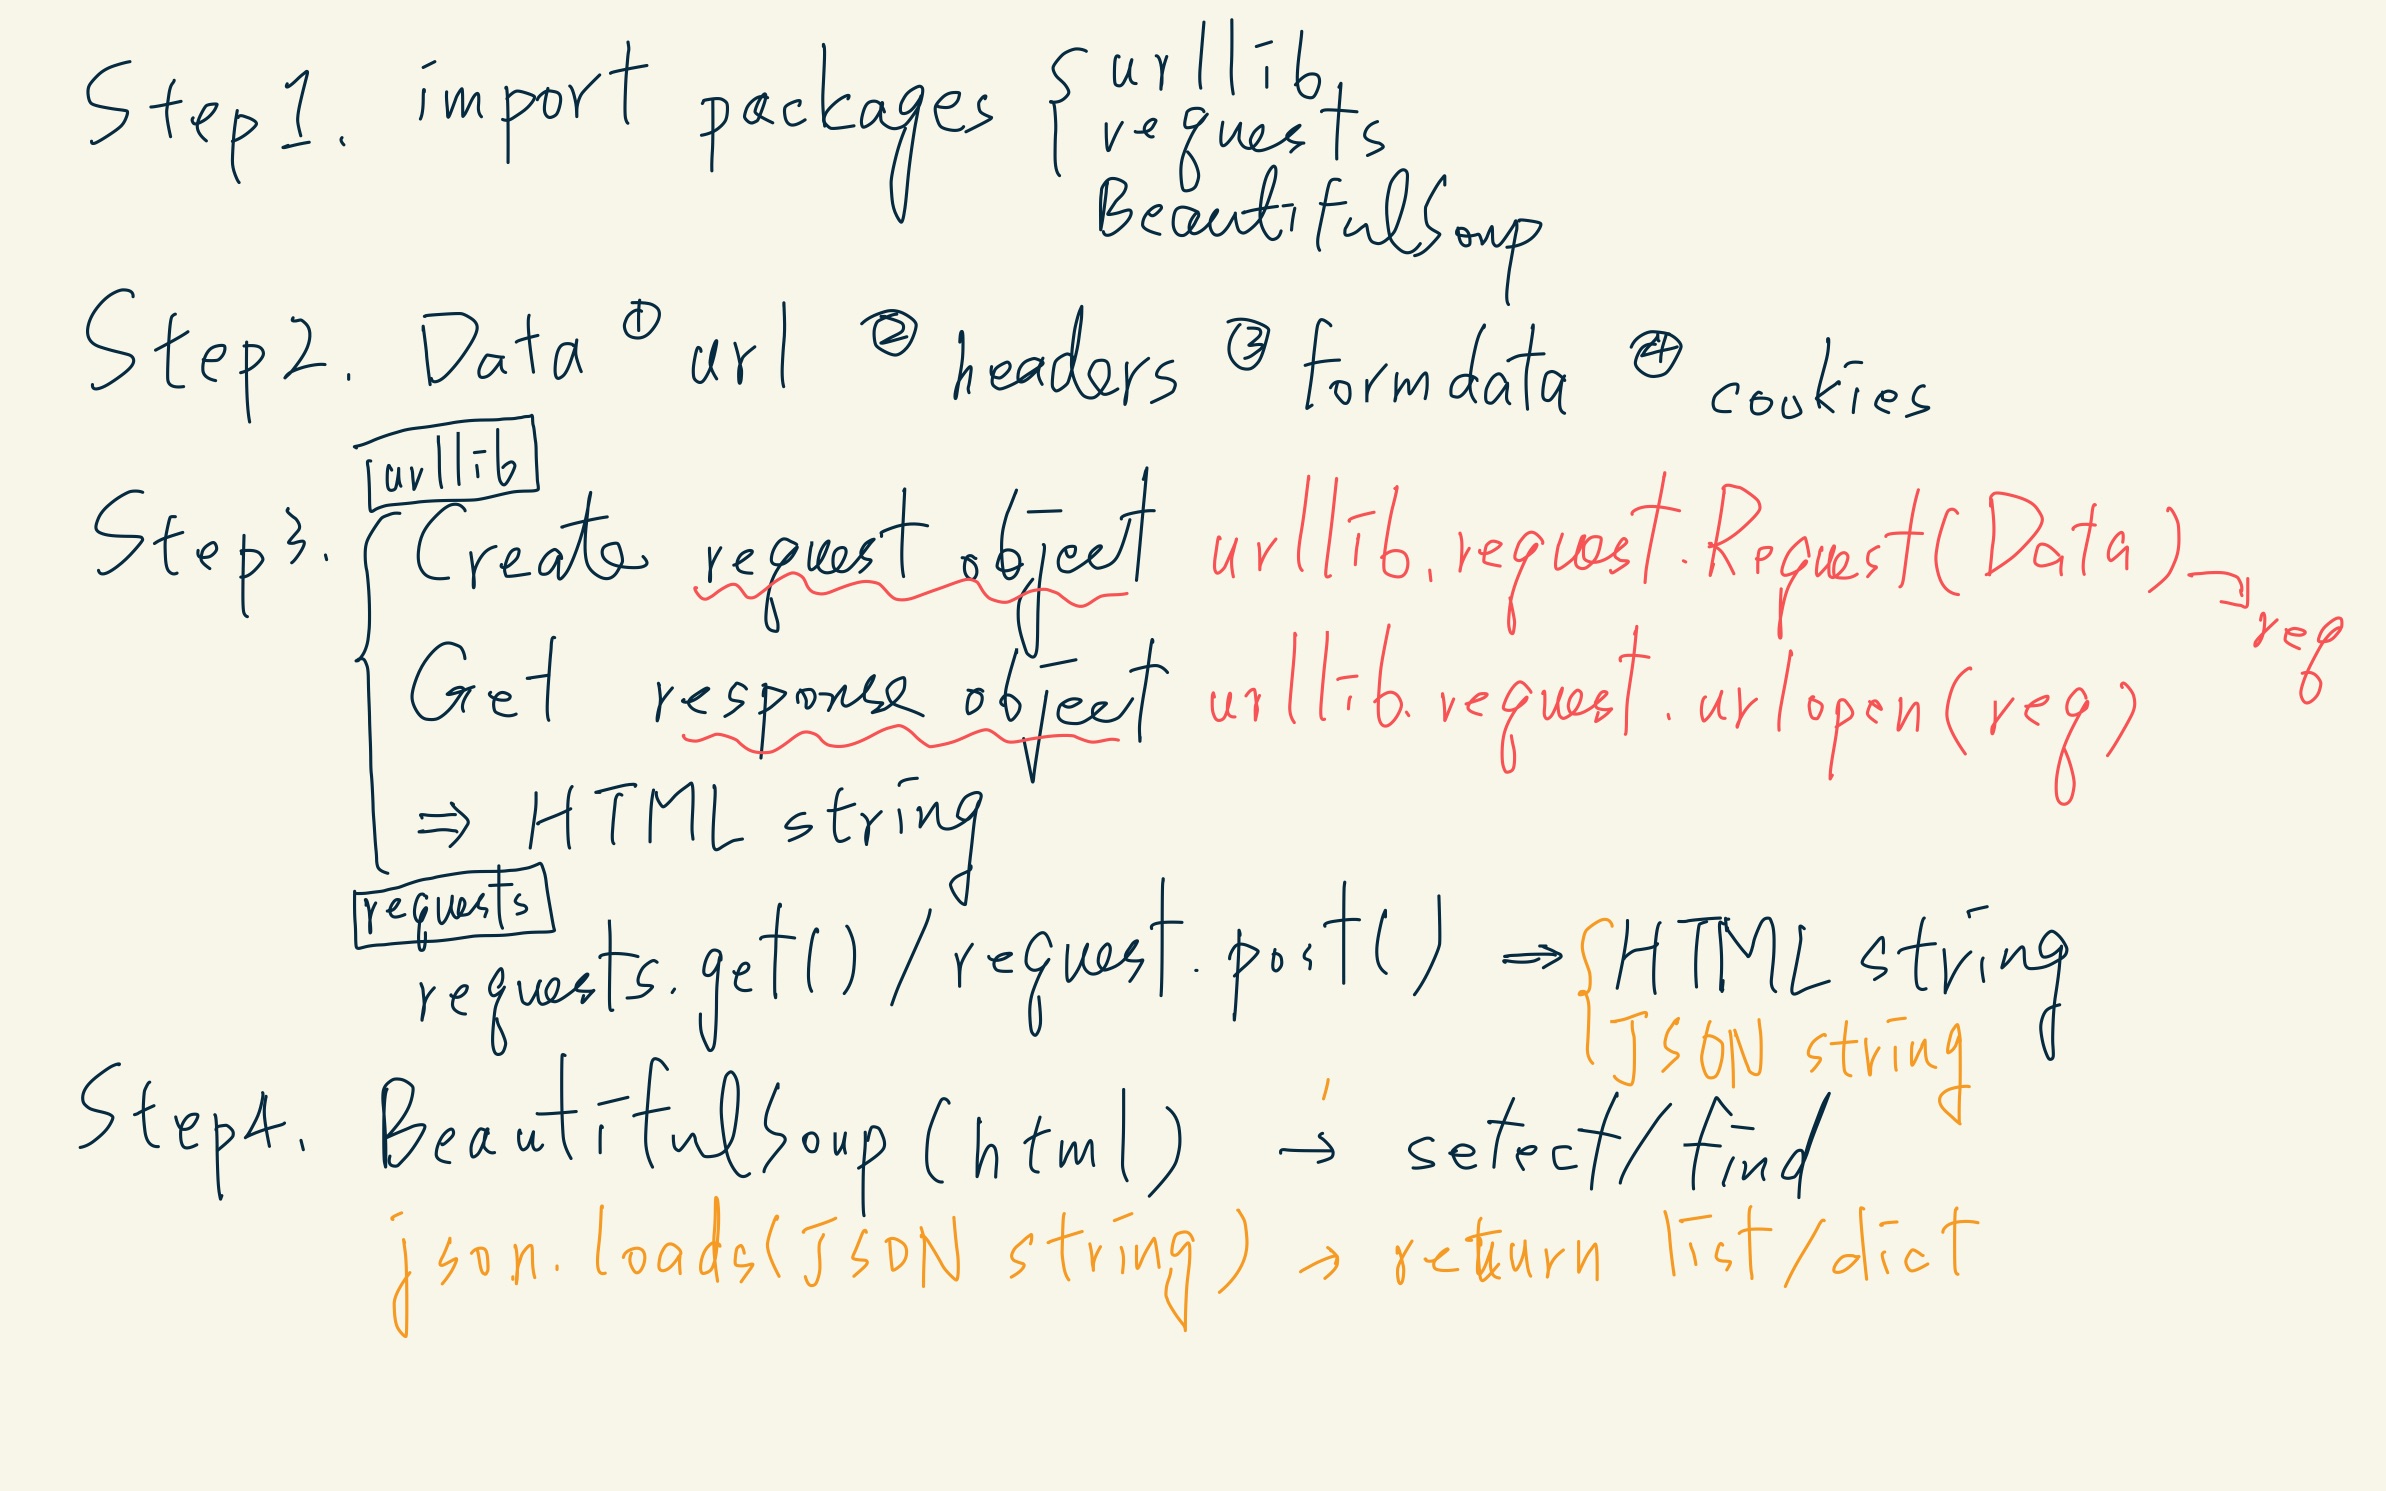 Step1. import packages { urllib
requests
BeautifulSoup
Step2. Data ① url ② headers ③ formdata ④ cookies
urllib
Step3. { Create request object urllib.request.Request(Data) → req
Get response object urllib.request.urlopen(req)
⇒ HTML string
requests
requests.get() / request.post() ⇒ { HTML string
JSON string
Step4. BeautifulSoup(html) → setect/find
json.loads(JSON string) → return list/dict